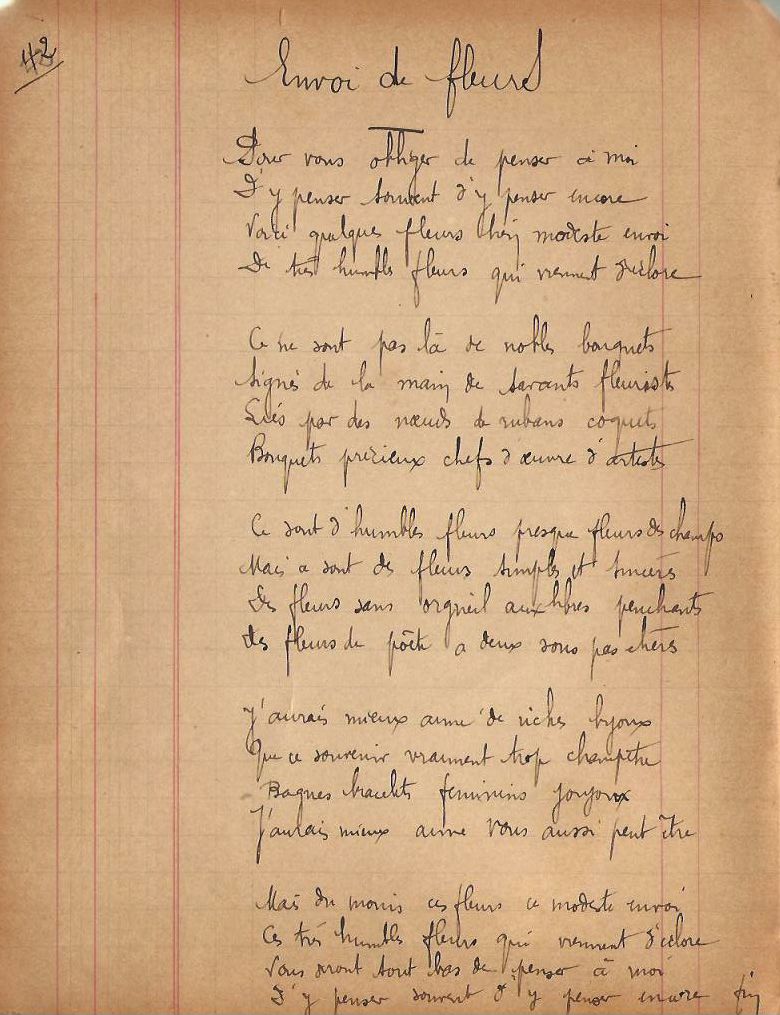 42
Envoi de fleurs
Pour vous obliger de penser à moi
D'y penser souvent d'y penser encore
Voici quelques fleurs bien modeste envoi
De très humbles fleurs qui viennent d'éclore
Ce ne sont pas là de nobles bouquets
Signés de la main de savants fleuristes
Liés par des nœuds de rubans coquets
Bouquets précieux chefs d'œuvre d'artistes
Ce sont d'humbles fleurs presque fleurs des champs
Mais ce sont des fleurs simples et sincères
Des fleurs sans orgueil aux libres penchants
Des fleurs de poëte a deux sous pas chères
J'aurais mieux aimé de riches byoux
Que ce souvenir vraiment trop champêtre
Bagues bracelets feminins joujoux
J'aurais mieux aimé vous aussi peut être
Mais du moins ces fleurs ce modeste envoi
Ces très humbles fleurs qui viennent d'éclore
Vous diront tout bas de penser à moi
D'y penser souvent d'y penser encore fin